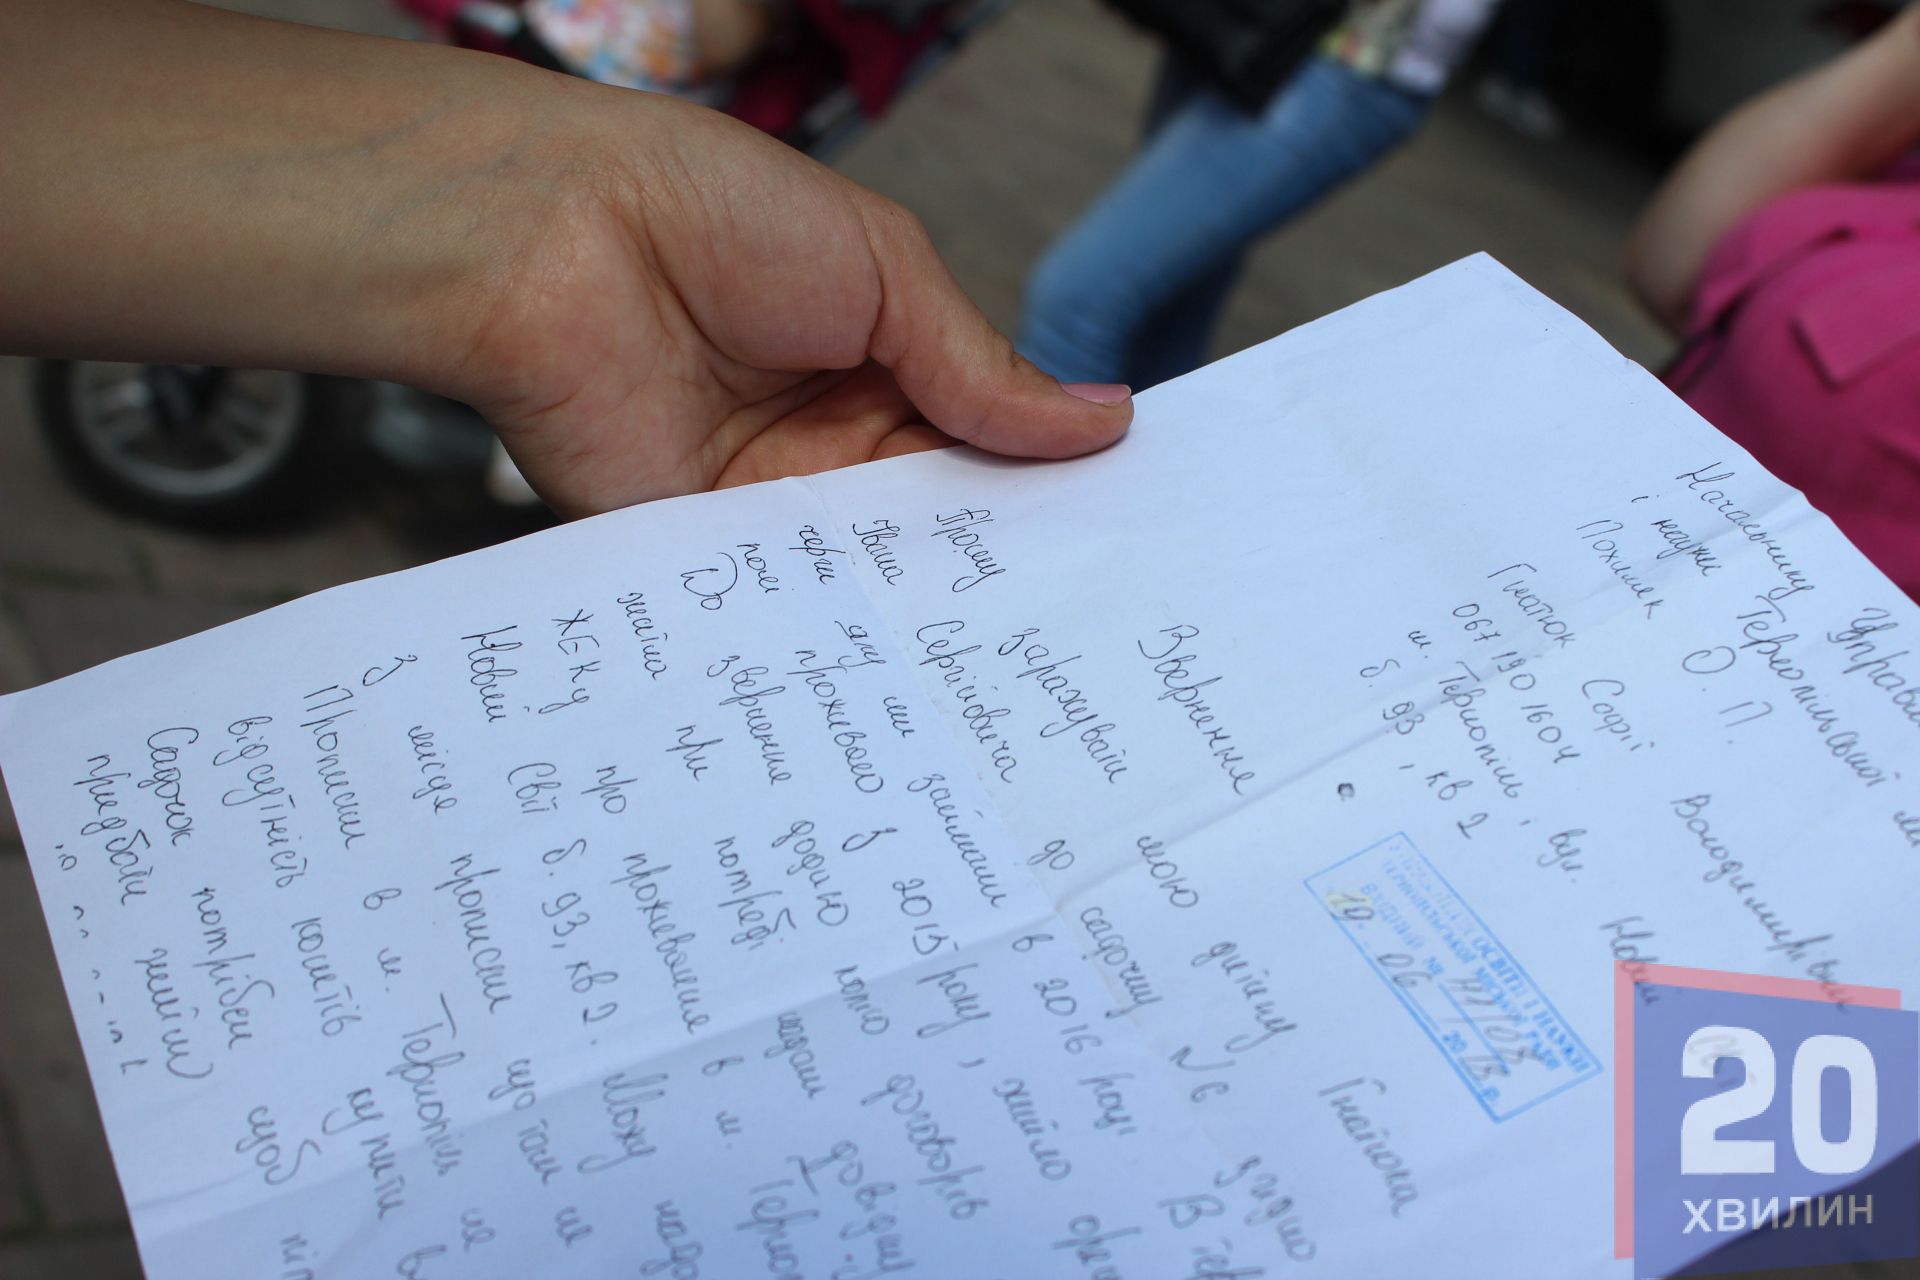 Начальнику Управлі
і науки Тернопільської мі
Похиляк О. П.
Гнатюк Софії Володимирівни
067 190 1604
м. Тернопіль, вул. Новий
б. 93, кв 2
ОСВІТИ І НАУКИ
ТЕРНОПІЛЬСЬКОЇ МІСЬКОЇ РАДИ
ВХІДНИЙ №
19 06 20 р.
Звернення
Прошу зарахувати мою дитину Гнатюка
Івана Сергійовича до садочку №6 згідно
черги яку ми зайняли в 2016 році В Тер
полі проживаю з 2015 року, житло оре
До звернення додаю копію договорів
житла при потребі надам довідку
ЖЕКу про проживання в м. Терноп
Новий Світ б. 93, кв 2. Можу надо
з місця прописки що там не
Прописки в м. Тернопіль не
відсутність коштів купити в
Садочок потрібен щоб піт
придбати житло
20
ХВИЛИН